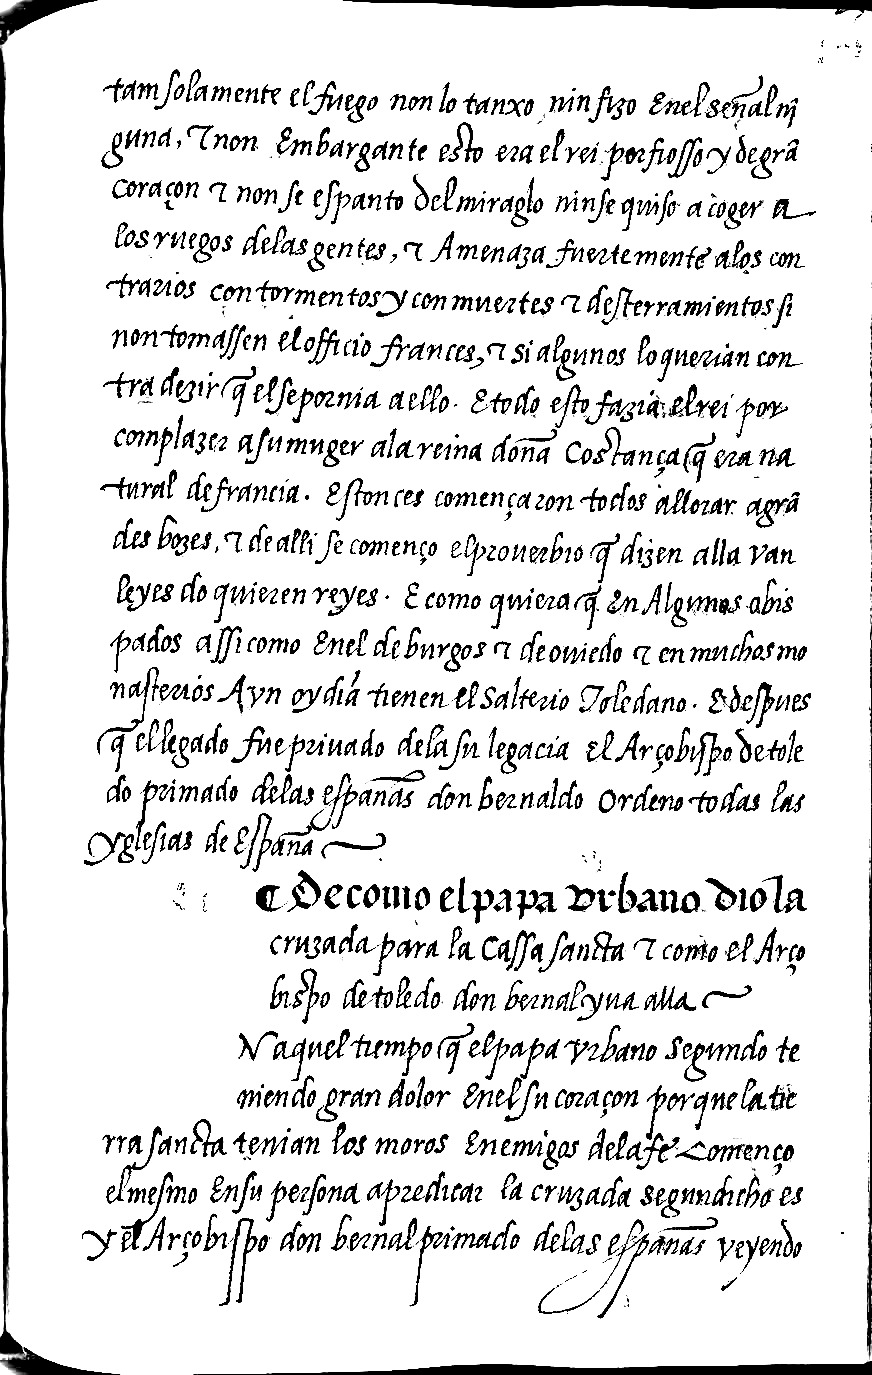 tam solamente el fuego non lo tanxo nin fizo Enel señal nĩ
guna, ⁊ non Embargante esto era el rei porfiosso y de grã
coraçon ⁊ non se espanto del miraglo nin se quiso acoger a
los ruegos delas gentes, ⁊ Amenaza fuertemente alos con
trarios con tormentos y con muertes ⁊ desterramientos si
non tomassen el officio frances, ⁊ si algunos lo querian con
tra dezir q̃ el se pornia a ello. E todo esto fazia el rei por
complazer a su muger ala reina doña Costança q̃ era na
tural de francia. Estonces començaron todos allorar a grã
des bozes, ⁊ de alli se començo el prouerbio q̃ dizen alla van
leyes do quieren reyes. E como quiera q̃ En Algunos obis
pados assi como Enel de burgos ⁊ de ouiedo ⁊ en muchos mo
nasterios Ayn oy dia tienen el Salterio Toledano. E despues
q̃ el legado fue priuado dela su legacia El Arçobispo de tole
do primado delas españas don bernaldo Ordeno todas las
yglesias de España
¶ De como el papa vrbano dio la
cruzada para la Cassa sancta ⁊ como el Arço
bispo de toledo don bernal yua alla
N aquel tiempo q̃ el papa vrbano segundo te
niendo gran dolor Enel su coraçon porque la tie
rra sancta tenian los moros Enemigos dela fe Començo
el mesmo En su persona a predicar la cruzada segun dicho es
y el Arçobispo don bernal primado delas españas veyendo